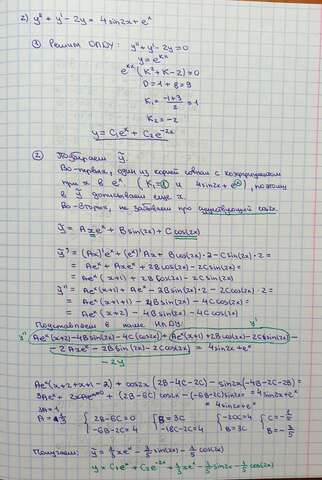 2) y'' + y' - 2y = 4sin2x + eˣ
① Решим ОЛДУ: y'' + y' - 2y = 0
y = e^{kx}
e^{kx}(k² + k - 2) = 0
D = 1 + 8 = 9
K₁ = (-1+3)/2 = 1
K₂ = -2
y = C₁eˣ + C₂e^{-2x}
② Подбираем ỹ.
Во-первых, один из корней совпал с коэффициентом
при x в eˣ. (K₁=1 и 4sin2x + eˣ), поэтому
в ỹ дописываем еще x.
Во-вторых, не забываем про существующий cos2x
ỹ = Axeˣ + Bsin(2x) + Ccos(2x)
ỹ' = (Ax)'eˣ + (eˣ)'Ax + Bcos(2x)·2 - Csin(2x)·2 =
= Aeˣ + Axeˣ + 2Bcos(2x) - 2Csin(2x) =
= Aeˣ(x+1) + 2Bcos(2x) - 2Csin(2x)
ỹ'' = Aeˣ(x+1) + Aeˣ - 2Bsin(2x)·2 - 2Ccos(2x)·2 =
= Aeˣ(x+1+1) - 4Bsin(2x) - 4Ccos(2x) =
= Aeˣ(x+2) - 4Bsin(2x) - 4Ccos(2x)
Подставляем в наше НЛДУ: y'
y'' Aeˣ(x+2) - 4Bsin(2x) - 4Ccos(2x) + Aeˣ(x+1) + 2Bcos(2x) - 2Csin(2x) -
- 2Axeˣ - 2Bsin(2x) - 2Ccos(2x) = 4sin2x + eˣ
-2y
Aeˣ(x+2+x+1-2) + cos2x(2B-4C-2C) - sin2x(-4B-2C-2B) =
= 4sin2x + eˣ
3Aeˣ + + (2B-6C)cos2x - (-6B-2C)sin2x = 4sin2x + eˣ
3A = 1
A = 1/3
{ 2B-6C=0
-6B-2C=4
{ B=3C
-18C-2C=4
{ -20C=4
B=3C
{ C=-1/5
B=-3/5
Получаем: ỹ = 1/3 xeˣ - 3/5 sin(2x) - 1/5 cos(2x)
y = C₁eˣ + C₂e^{-2x} + 1/3 xeˣ - 3/5 sin2x - 1/5 cos(2x)